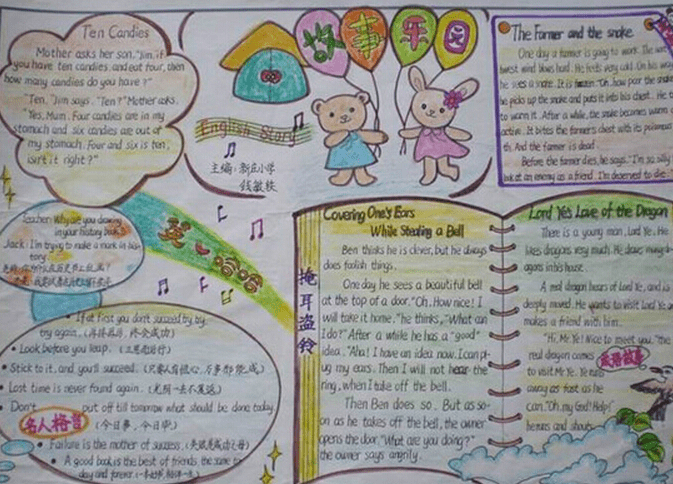 Ten Candies
Mother asks her son, "Jim, if
you have ten candies, and eat four, then
how many candies do you have?"
"Ten," Jim says. "Ten?" Mother asks.
"Yes, Mum. Four candies are in my
stomach and six candies are out of
my stomach. Four and six is ten,
isn't it right?"
故事乐园
English Story
主编:新庄小学
钱敏轶
The Farmer and the snake
One day a farmer is going to work. The
west wind blows hard. He feels very cold. On his way
he sees a snake. It is "Oh, poor the snake
he picks up the snake and puts it into his chest. He
to warm it. After a while, the snake becomes warm
active. It bites the farmer's chest with its poisonous
th. And the farmer is dead.
Before the farmer dies, he says, "I'm so silly
look at an enemy as a friend. I'm deserved to die
英 哈哈
Teacher: Why are you drawing
in your history book?
Jack: I'm trying to make a mark in his
tory.
If at first you don't succeed, try, try,
try again. (再接再厉,终会成功)
Look before you leap. (三思而后行)
Stick to it, and you'll succeed. (只要人有恒心,万事都能成)
Lost time is never found again. (光阴一去不复返)
Don't put off till tomorrow what should be done today.
名人格言 (今日事,今日毕)
Failure is the mother of success. (失败是成功之母)
A good book is the best of friends, the same to
day and forever.
掩耳盗铃
Covering One's Ears
While Stealing a Bell
Ben thinks he is clever, but he always
does foolish things.
One day he sees a beautiful bell
at the top of a door. "Oh, How nice! I
will take it home," he thinks, "What can
I do?" After a while he has a "good"
idea. "Aha! I have an idea now. I can pl-
ug my ears. Then I will not hear the
ring, when I take off the bell.
Then Ben does so. But as so-
on as he takes off the bell, the owner
opens the door. "What are you doing?"
the owner says angrily.
Lord Ye's Love of the Dragon
There is a young man, Lord Ye. He
likes dragons very much. He draws many dr-
agons in his house.
A real dragon hears of Lord Ye, and is
deeply moved. He wants to visit Lord Ye an
makes a friend with him.
"Hi, Mr Ye! Nice to meet you," the
real dragon comes
to visit Mr Ye. Ye runs
away as fast as he
can. "Oh, my God! Help!"
he runs and shouts.
成语故事